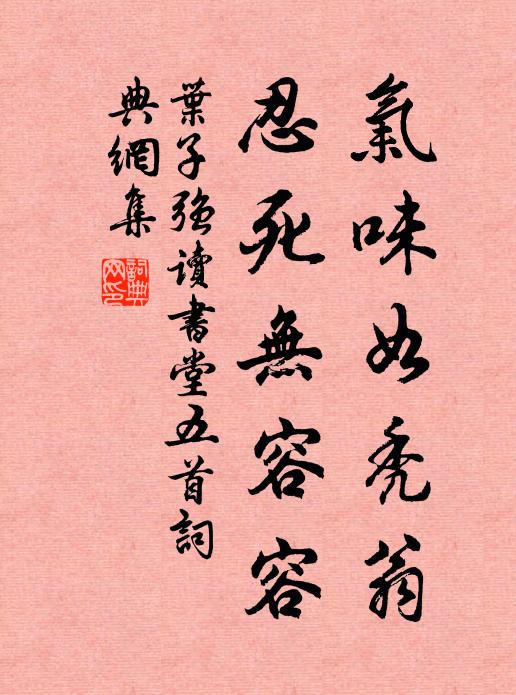 氣味如禿翁
忍死無容容
葉子強讀書堂五首詞
典網集
詞典
网印